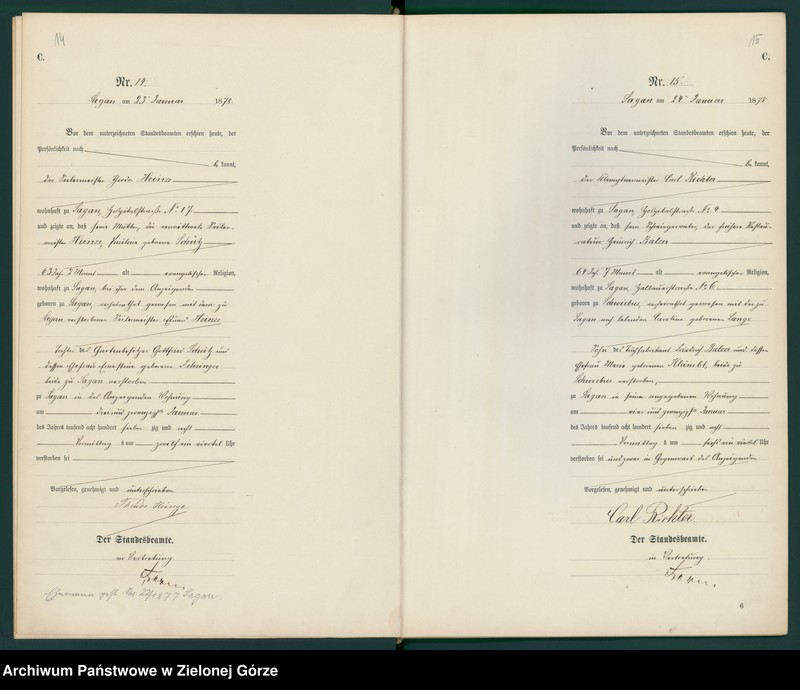 14
C.
Nr. 14.
Sagan am 23ten Januar 1878.
Vor dem unterzeichneten Standesbeamten erschien heute, der
Persönlichkeit nach
be kannt,
der Seilermeister Heinze
wohnhaft zu Sagan, Hospitalstraße No 17.
und zeigte an, daß seine Mutter, die verwittwete Seiler-
meister Heinze, Pauline geborne Schütz
63 Jahr 2 Monat alt evangelischer Religion,
wohnhaft zu Sagan, bei ihm dem Anzeigenden
geboren zu Sagan, verheirathet gewesen mit dem zu
Sagan verstorbenen Seilermeister Eduard Heinze
Tochter des Gartenbesitzer Gottfried Schütz und
dessen Ehefrau Ernestine geborene
beide zu Sagan verstorben
zu Sagan in des Anzeigenden Wohnung
am drei und zwanzigsten Januar
des Jahres tausend acht hundert sieben zig und acht
Vormittag s um zwölf ein viertel Uhr
verstorben sei
Vorgelesen, genehmigt und unterschrieben
Heinze
Der Standesbeamte.
in Vertretung
Ehemann gest. 1877 Sagan.
15
C.
Nr. 15.
Sagan am 24ten Januar 1878
Vor dem unterzeichneten Standesbeamten erschien heute, der
Persönlichkeit nach
be kannt,
der Klemptnermeister Carl Richter
wohnhaft zu Sagan, Hospitalstraße No 4
und zeigte an, daß sein Schwiegervater, der frühere Restau-
rateur Heinrich Balcer
64 Jahr 7 Monat alt evangelischer Religion,
wohnhaft zu Sagan, No 6
geboren zu Schwiebus, verheirathet gewesen mit der zu
Sagan noch lebenden Caroline geborenen Lange
Sohn des Tuchfabrikant Friedrich Balcer und dessen
Ehefrau Marie geborenen Klambt, beide zu
Schwiebus verstorben,
zu Sagan in seiner angegebenen Wohnung
am vier und zwanzigsten Januar
des Jahres tausend acht hundert sieben zig und acht
Vormittag s um sechs ein viertel Uhr
verstorben sei und zwar in Gegenwart des Anzeigenden
Vorgelesen, genehmigt und unterschrieben
Carl Richter
Der Standesbeamte.
in Vertretung
6
Archiwum Państwowe w Zielonej Górze